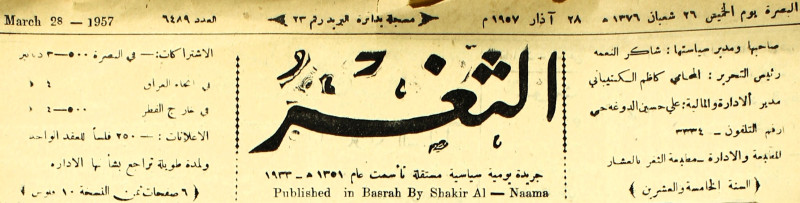 البصرة يوم الخميس ٢٦ شعبان ١٣٧٦ ھ ٢٨ آذار ١٩٥٧ م مسجلة بدائرة البريد رقم ٢٣ العدد ٦٤٨٩ March 28 — 1957
صاحبها ومدير سياستها : شاكر النعمه
رئيس التحرير : المحامي كاظم الكنيتباني
مدير الادارة والمالية : علي حسين الدوغه جي
رقم التلفون — ٣٣٣٤
المطبعة والادارة — مطبعة الثغر بالعشار
( السنة الخامسة والعشرين )
الثغر
جريدة يومية سياسية مستقلة تأسست عام ١٣٥١ ھ — ١٩٣٣
Published in Basrah By Shakir Al — Naama
الاشتراكات :— في البصرة ٥٠٠—٣ دنانير
في انحاء العراق ٤ »
في خارج القطر ٥٠٠—٤ »
الاعلانات :— ٢٥٠ فلساً للعقد الواحد
ولمدة طويلة تراجع بشأنها الاداره
( ٦ صفحات ثمن النسخة ١٠ فلوس )